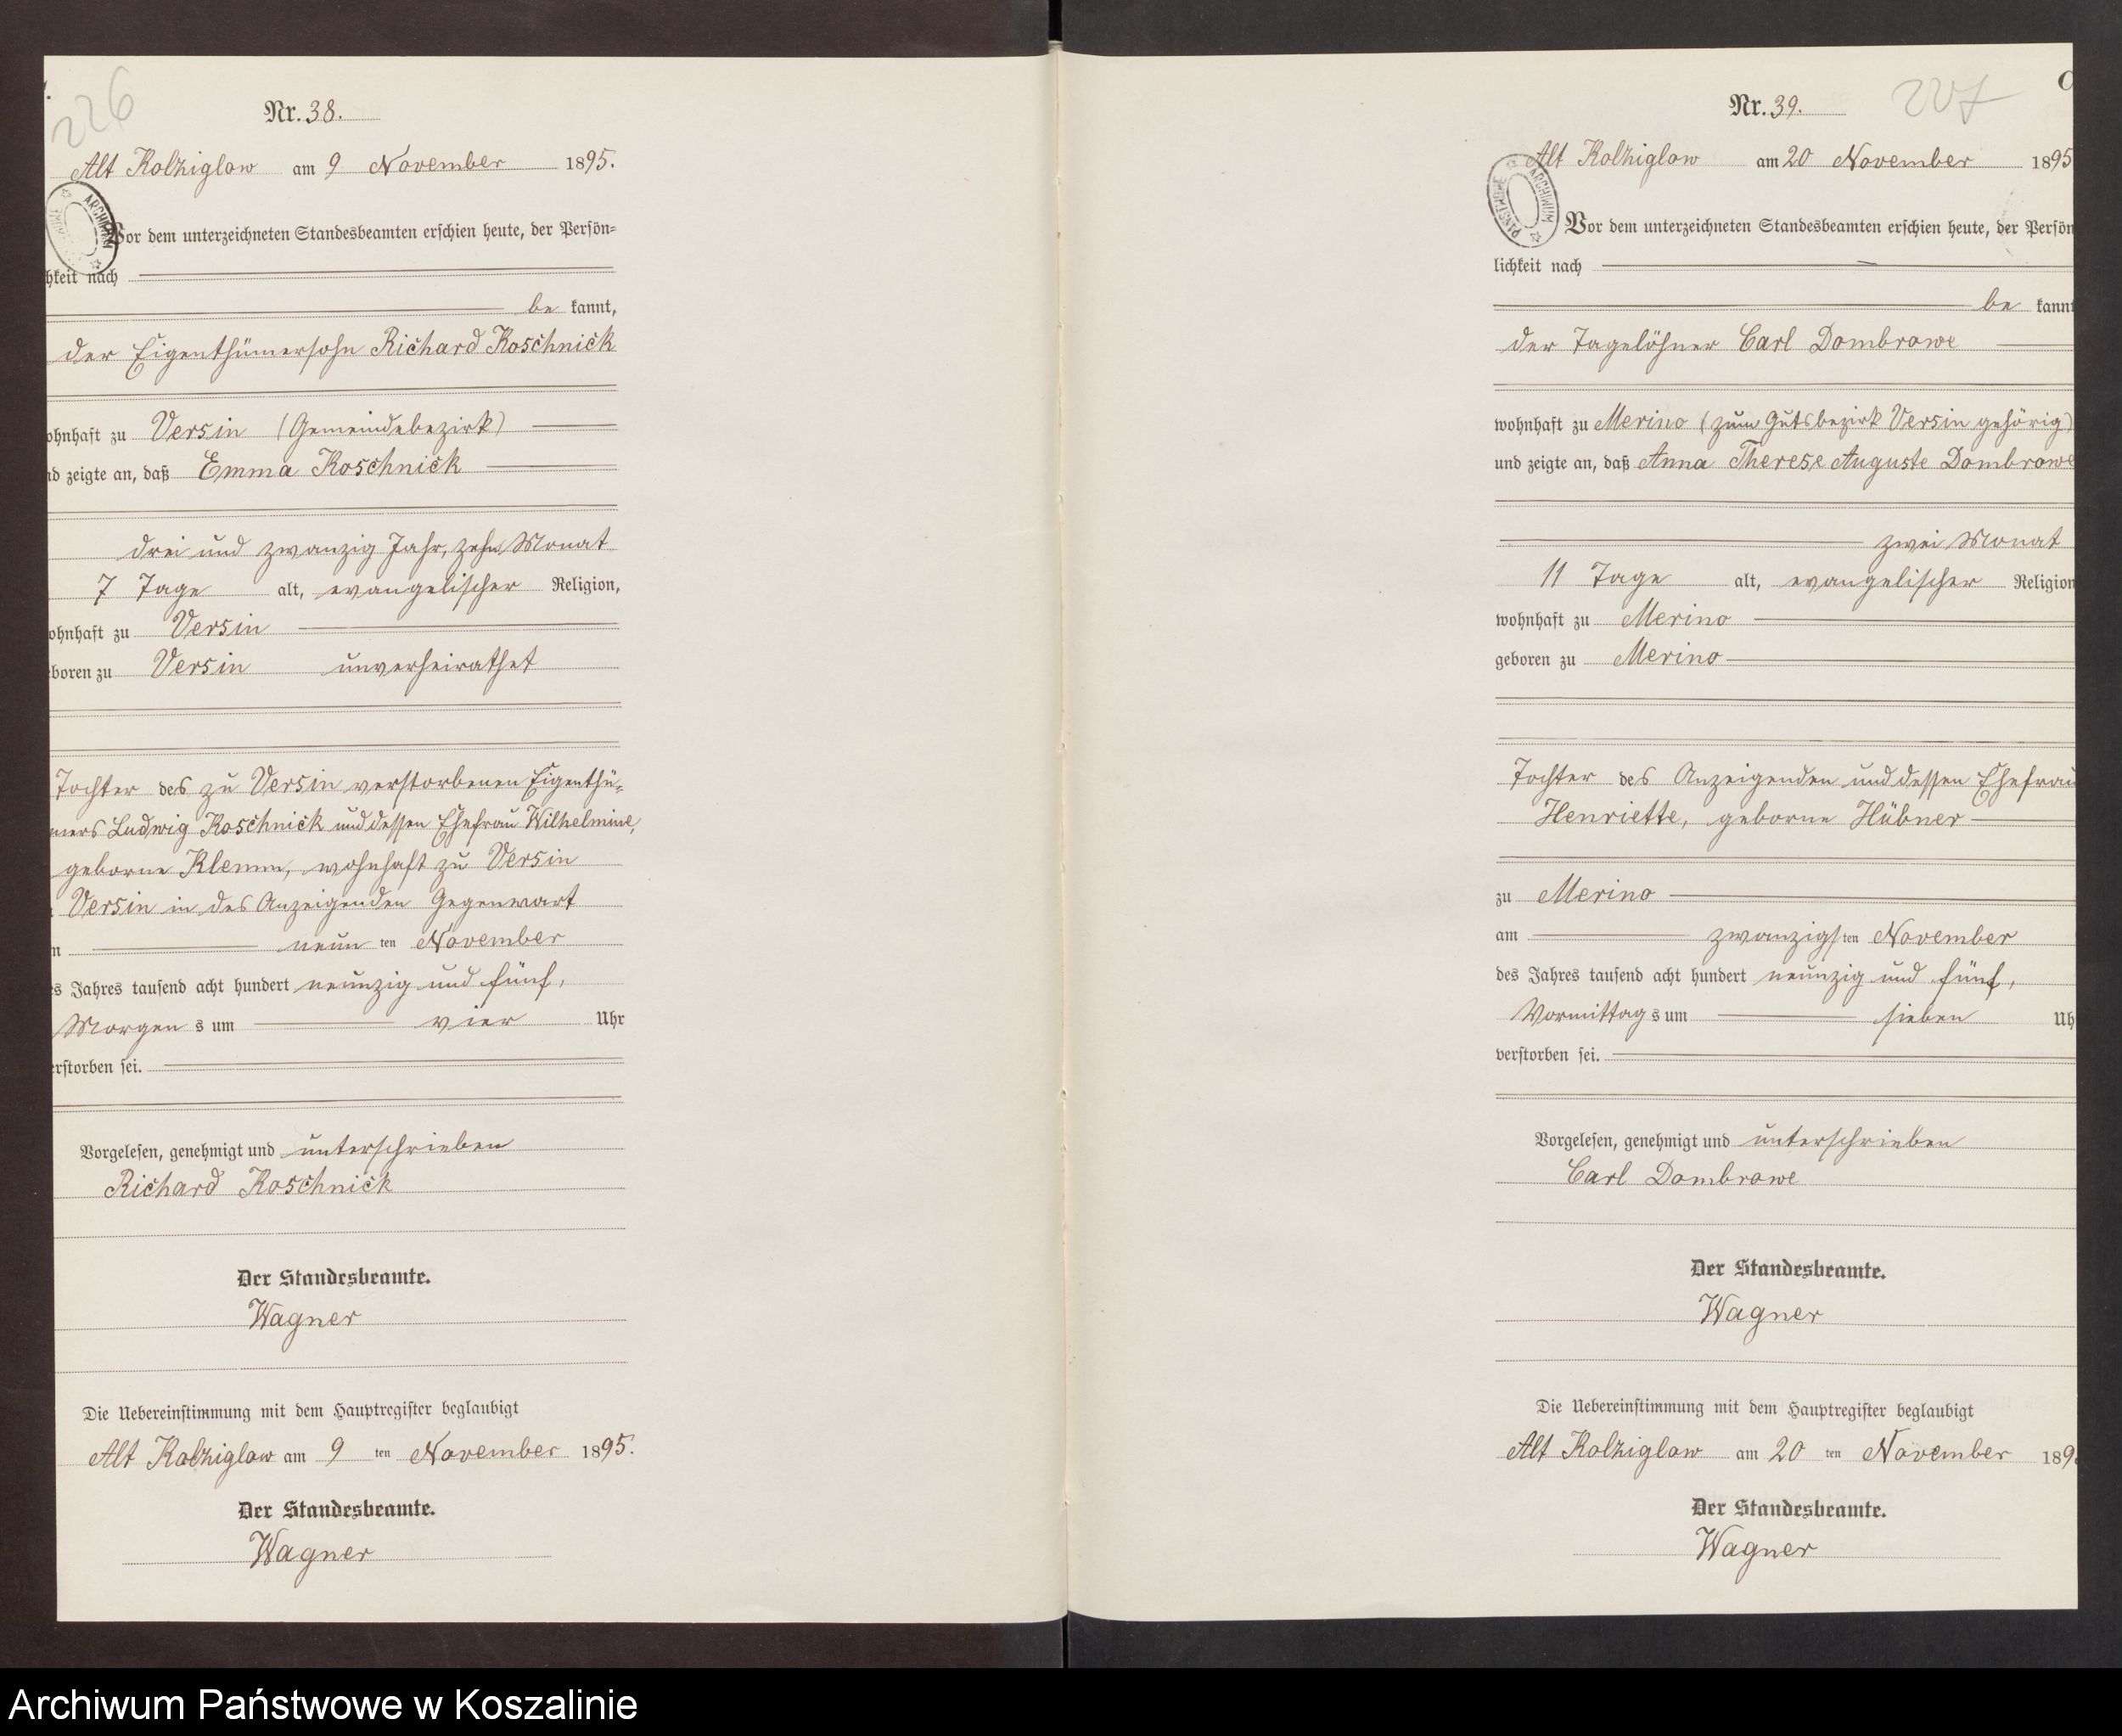 226
Nr. 38.
Alt Kolziglow am 9 November 1895.
ARCHIWUM
Vor dem unterzeichneten Standesbeamten erschien heute, der Persön=
hkeit nach
be kannt,
der Eigenthümersohn Richard Koschnick
ohnhaft zu Versin (Gemeindebezirk)
nd zeigte an, daß Emma Koschnick
drei und zwanzig Jahr, zehn Monat
7 Tage alt, evangelischer Religion,
ohnhaft zu Versin
boren zu Versin unverheirathet
Tochter des zu Versin verstorbenen Eigenthü=
mers Ludwig Koschnick und dessen Ehefrau Wilhelmine,
geborne Klemm, wohnhaft zu Versin
Versin in des Anzeigenden Gegenwart
neun ten November
s Jahres tausend acht hundert neunzig und fünf,
Morgen s um vier Uhr
rstorben sei.
Vorgelesen, genehmigt und unterschrieben
Richard Koschnick
Der Standesbeamte.
Wagner
Die Uebereinstimmung mit dem Hauptregister beglaubigt
Alt Kolziglow am 9 ten November 1895.
Der Standesbeamte.
Wagner
227
C
Nr. 39.
Alt Kolziglow am 20 November 1895
ARCHIWUM PAŃSTWOWE
Vor dem unterzeichneten Standesbeamten erschien heute, der Persön
lichkeit nach
be kannt
der Tagelöhner Carl Dombrowe
wohnhaft zu Merino (zum Gutsbezirk Versin gehörig)
und zeigte an, daß Anna Therese Auguste Dombrowe
zwei Monat
11 Tage alt, evangelischer Religion
wohnhaft zu Merino
geboren zu Merino
Tochter des Anzeigenden und dessen Ehefrau
Henriette, geborne Hübner
zu Merino
am zwanzigs ten November
des Jahres tausend acht hundert neunzig und fünf,
Vormittag s um sieben Uh
verstorben sei.
Vorgelesen, genehmigt und unterschrieben
Carl Dombrowe
Der Standesbeamte.
Wagner
Die Uebereinstimmung mit dem Hauptregister beglaubigt
Alt Kolziglow am 20 ten November 189
Der Standesbeamte.
Wagner
Archiwum Państwowe w Koszalinie